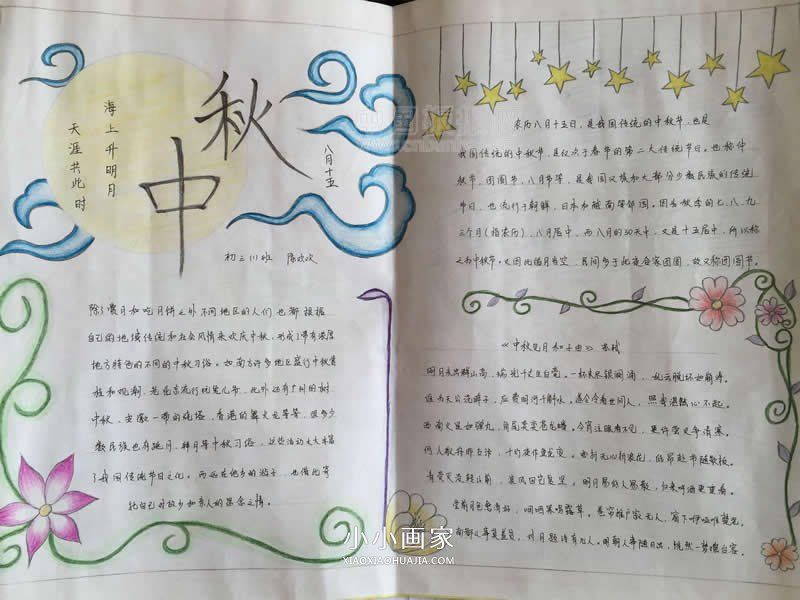 海上升明月
天涯共此时
中秋
八月十五
初三(1)班
除了赏月和吃月饼之外不同地区的人们也都根据
自己的地域传统和社会风情来欢庆中秋,形成了带有浓厚
地方特色的不同的中秋习俗。如南方许多地区盛行中秋赏
桂和观潮,老北京流行玩兔儿爷,此外还有广州的树
中秋,安徽一带的烧塔,香港的舞火龙等等,很多少
数民族也有跳月,拜月等中秋习俗,这些活动大大丰富
了我国传统节日文化。而远在他乡的游子,也借此寄
托自己对故乡和亲人的思念之情。
农历八月十五日,是我国传统的中秋节,也是
我国传统的中秋节,是仅次于春节的第二大传统节日。也称仲
秋节、团圆节、八月节等,是我国汉族和大部分少数民族的传统
节日,也流行于朝鲜、日本和越南等邻国。因为秋季的七、八、九
三个月(指农历),八月居中,而八月的30天中,又是十五居中,所以称
之为中秋节。又因此夜月当空,民间多于此夜合家团圆,故又称团圆节。
《中秋见月和子由》苏轼
明月未出群山高,瑞光千丈生白毫。一杯未尽银阙涌,乱云脱坏如崩涛。
谁为天公洗眸子,应费明河千斛水。遂令冷看世间人,照我湛然心不起。
西南火星如弹丸,角尾奕奕苍龙蟠。今宵注眼看不见,更许萤火争清寒。
何人舣舟昨古汴,千灯夜作鱼龙变。曲折无心逐浪花,低昂赴节随歌板。
青荧灭没转山前,浪飐风回岂复坚。明月易低人易散,归来呼酒更重看。
堂前月色愈清好,咽咽寒螀鸣露草。卷帘推户寂无人,窗下咿哑唯楚老。
南都从事莫羞贫,对月题诗有几人。明朝人事随日出,恍然一梦瑶台客。
小小画家
XIAOXIAOHUAJIA.COM